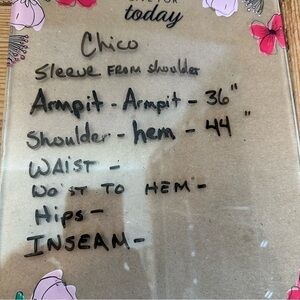 LIVE FOR
today
Chico
Sleeve From Shoulder
Armpit - Armpit - 36"
Shoulder - hem - 44"
WAIST -
WAIST TO HEM -
Hips -
INSEAM -